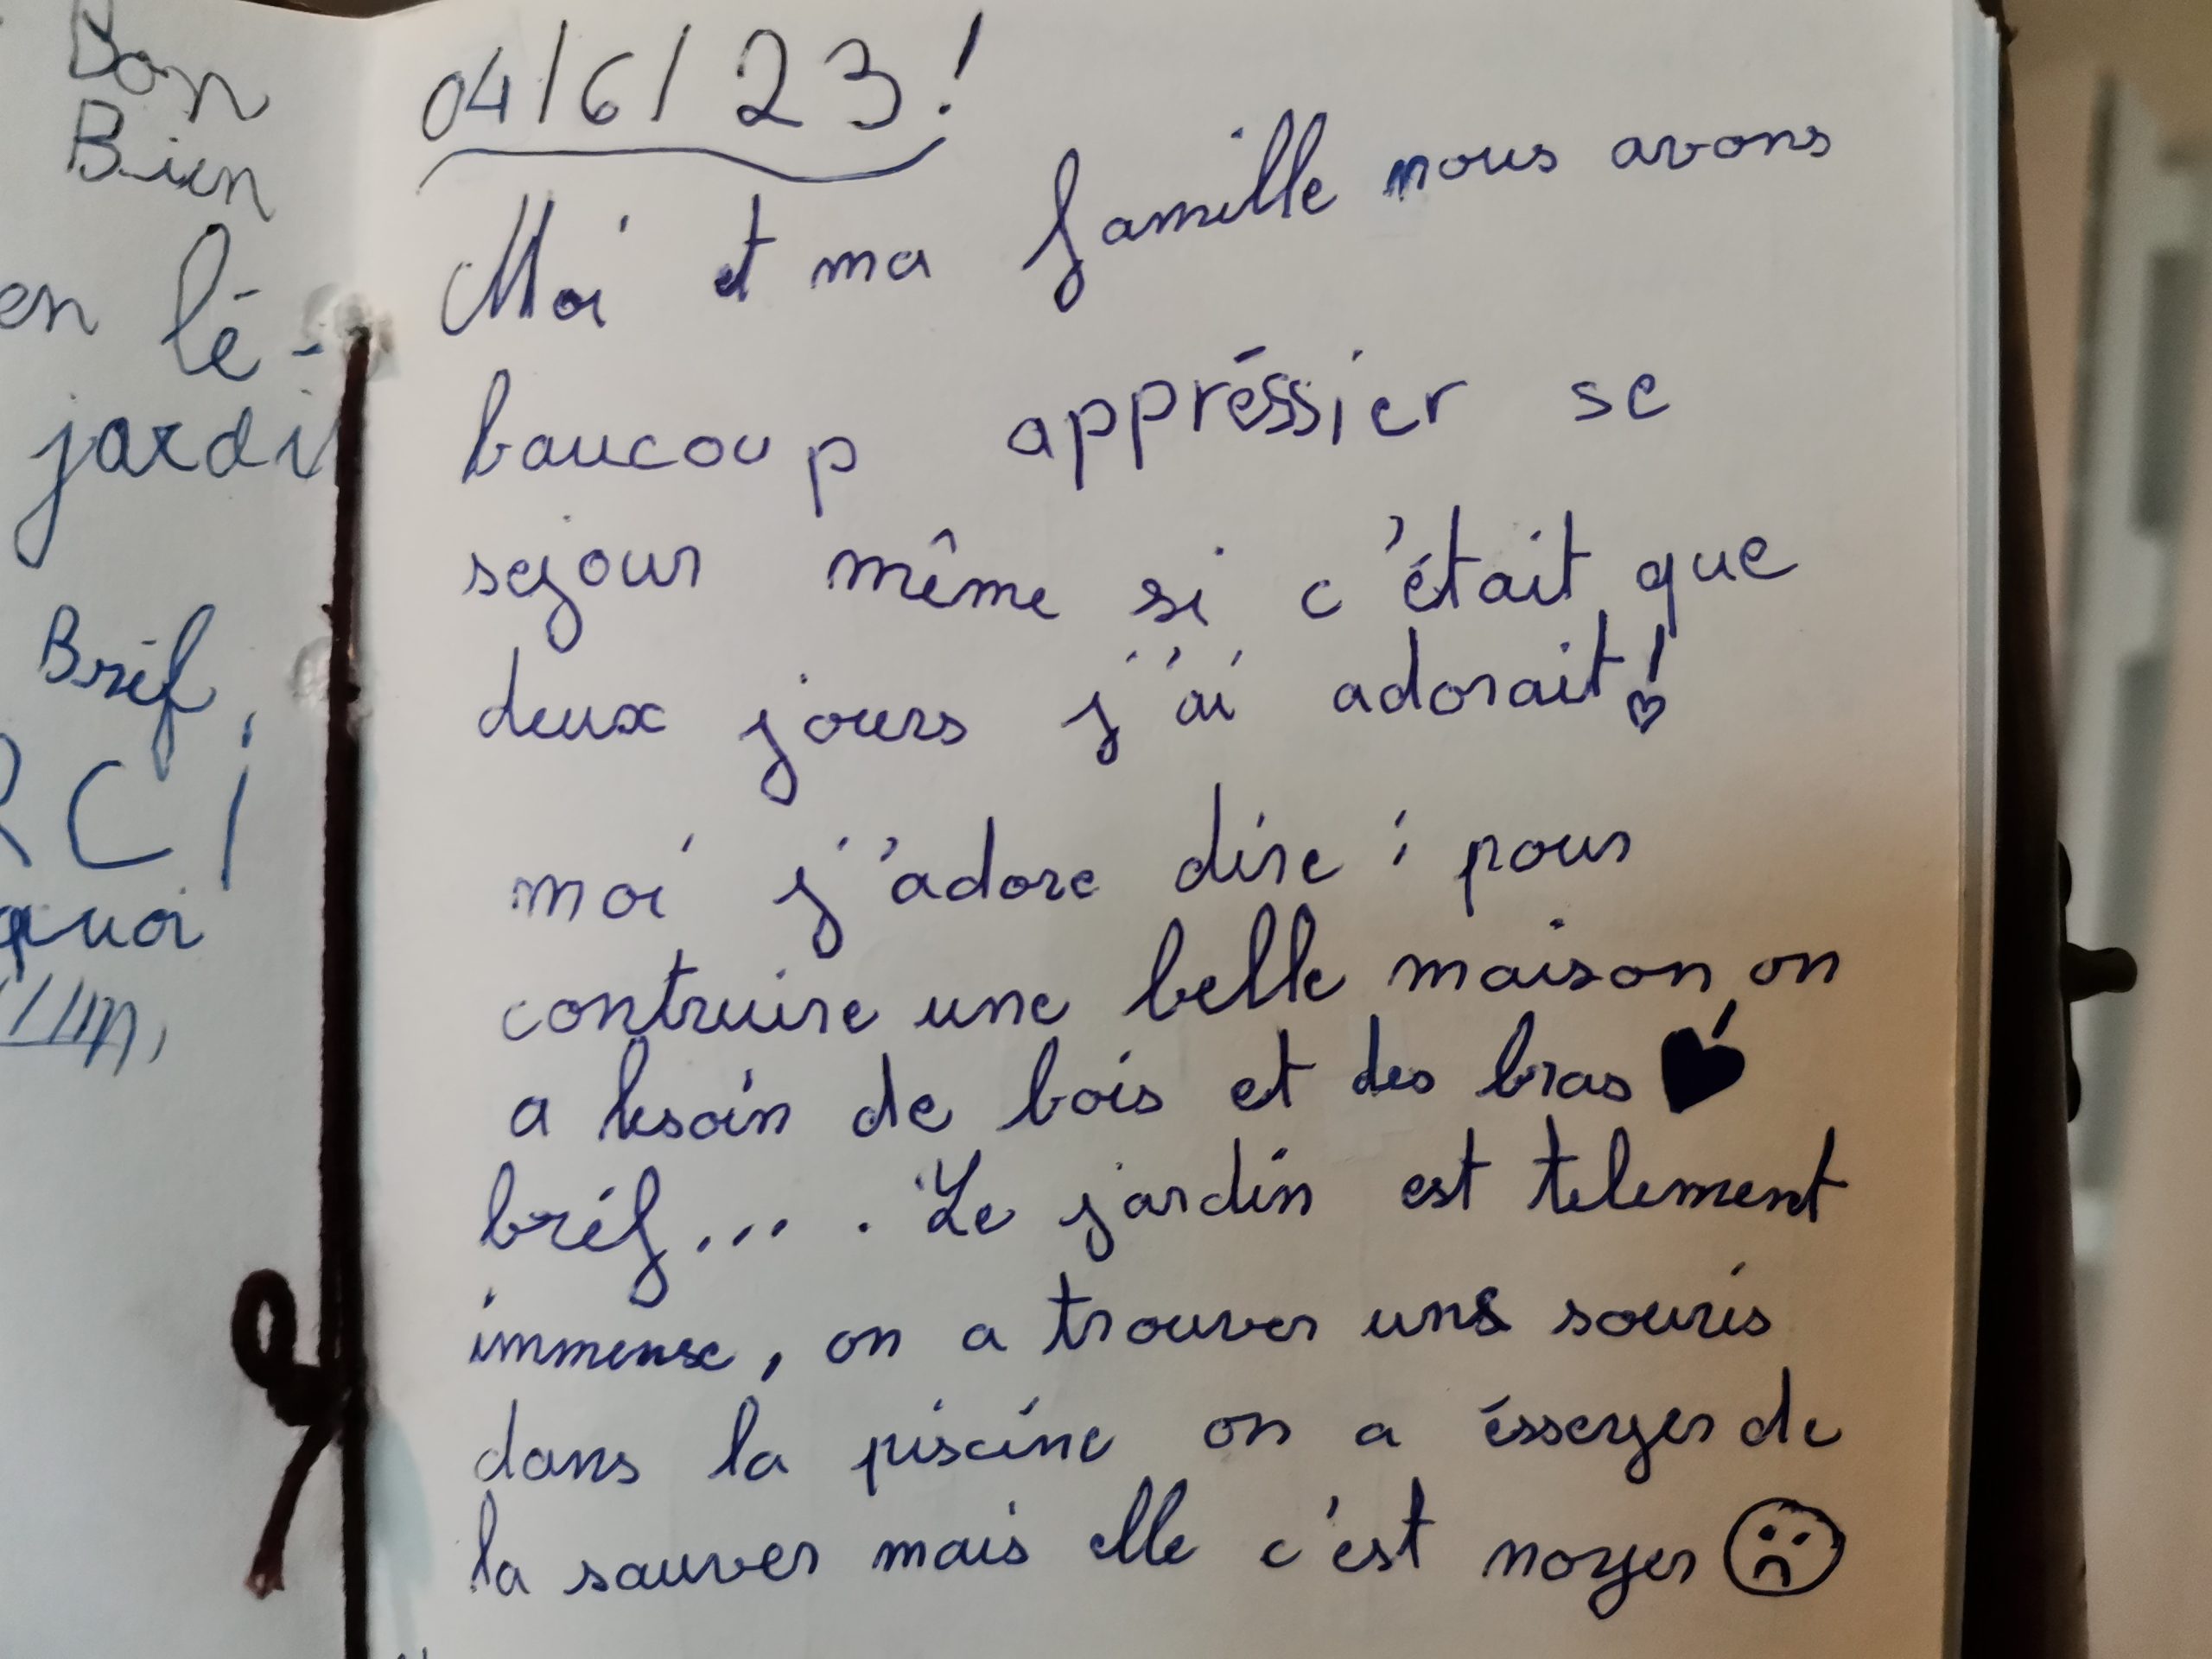 Bon
Bien
en lé-
jardi
Bréf,
RCi
quoi
04/6/23!
Moi et ma famille nous avons
baucoup appréssier se
sejour même si c'était que
deux jours j'ai adorait!
moi j'adore dire : pour
contruire une belle maison on
a besoin de bois et des bras
bréf.... Le jardin est telement
immense, on a trouver une souris
dans la piscine on a ésseyer de
la sauver mais elle c'est noyer